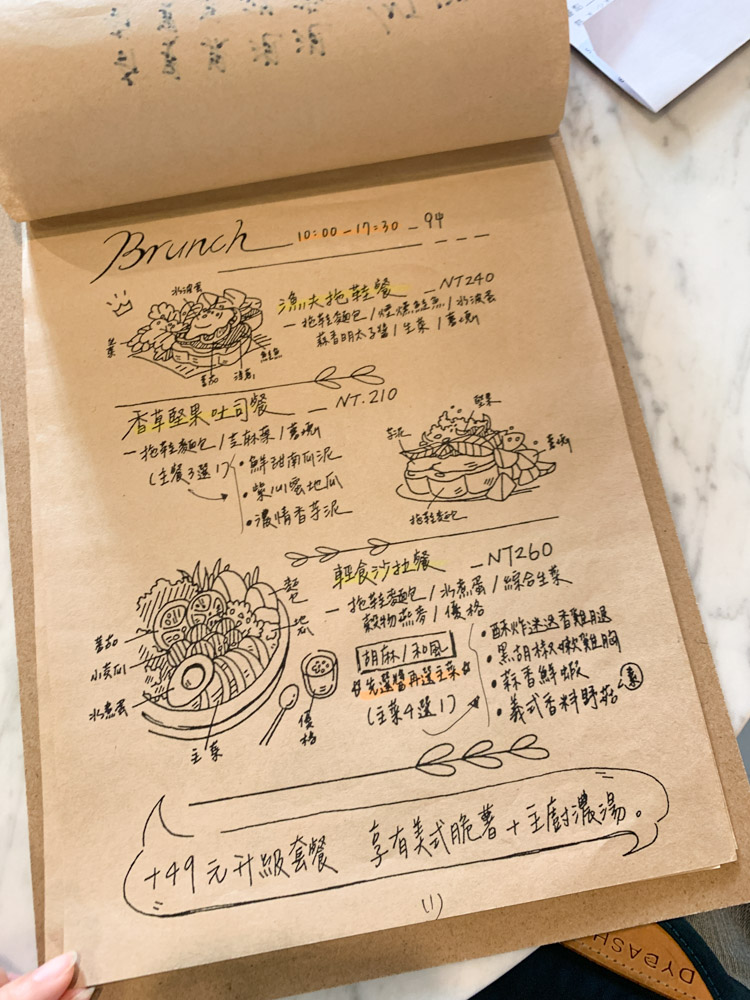 Brunch 10:00-17:30
水波蛋
番茄
漁夫拖鞋餐 - NT240
- 拖鞋麵包 / 煙燻鮭魚 / 水波蛋
蒜香明太子醬 / 生菜 / 薯塊
香草堅果吐司餐 - NT.210
- 拖鞋麵包 / 芝麻葉 / 薯塊
(主餐3選1)
• 鮮甜南瓜泥
• 紫心蜜地瓜
• 濃情香芋泥
堅果
芋泥
薯塊
拖鞋麵包
輕食沙拉餐 - NT260
- 拖鞋麵包 / 水煮蛋 / 綜合生菜
穀物燕麥 / 優格
胡麻 / 和風
先選醬再選主菜
(主菜4選1)
• 酥炸迷迭香雞腿
• 黑胡椒嫩雞胸
• 蒜香鮮蝦
• 義式香料野菇 素
麵包
地瓜
番茄
小黃瓜
水煮蛋
主菜
優格
+49元升級套餐 享有美式脆薯+主廚濃湯。
(1)
DYDASH